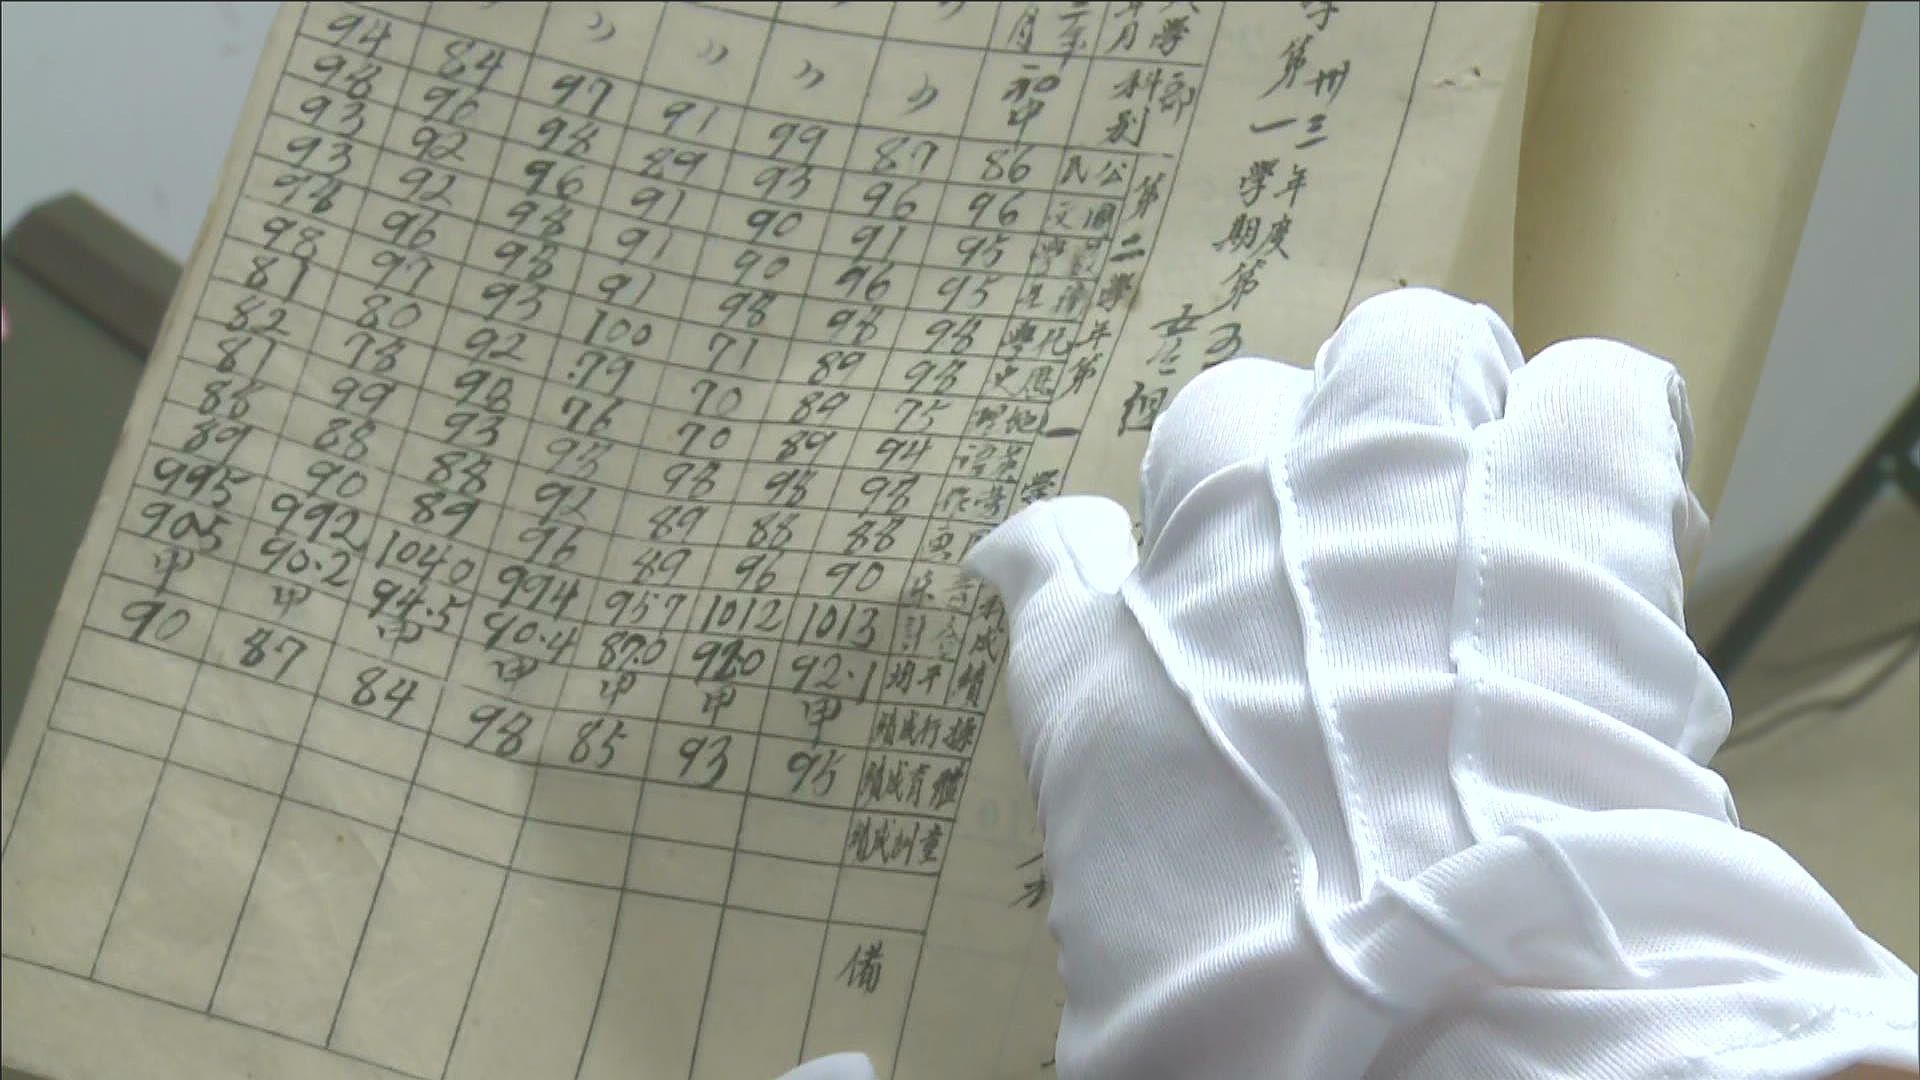 卅三年度第
第一學期
科別
初中
第二學年第一學
成績
公民 86 87 99 91 97 84 94
國文 96 96 93 89 98 90 98
數學 95 91 90 91 96 92 93
95 96 90 91 98 92 93
化學 98 98 98 91 98 96 98
歷史 98 89 71 100 93 97 98
地理 75 89 70 79 92 80 81
英語 94 89 70 76 98 78 82
勞作 98 98 98 98 93 99 87
88 88 89 92 88 88 88
90 96 89 96 89 90 89
合計 1013 1012 957 994 1040 992 995
平均 92.1 92.0 87.0 90.4 94.5 90.2 90.5
操行成績 甲 甲 甲 甲 甲 甲 甲
體育成績 95 93 85 98 84 87 90
童訓成績
備